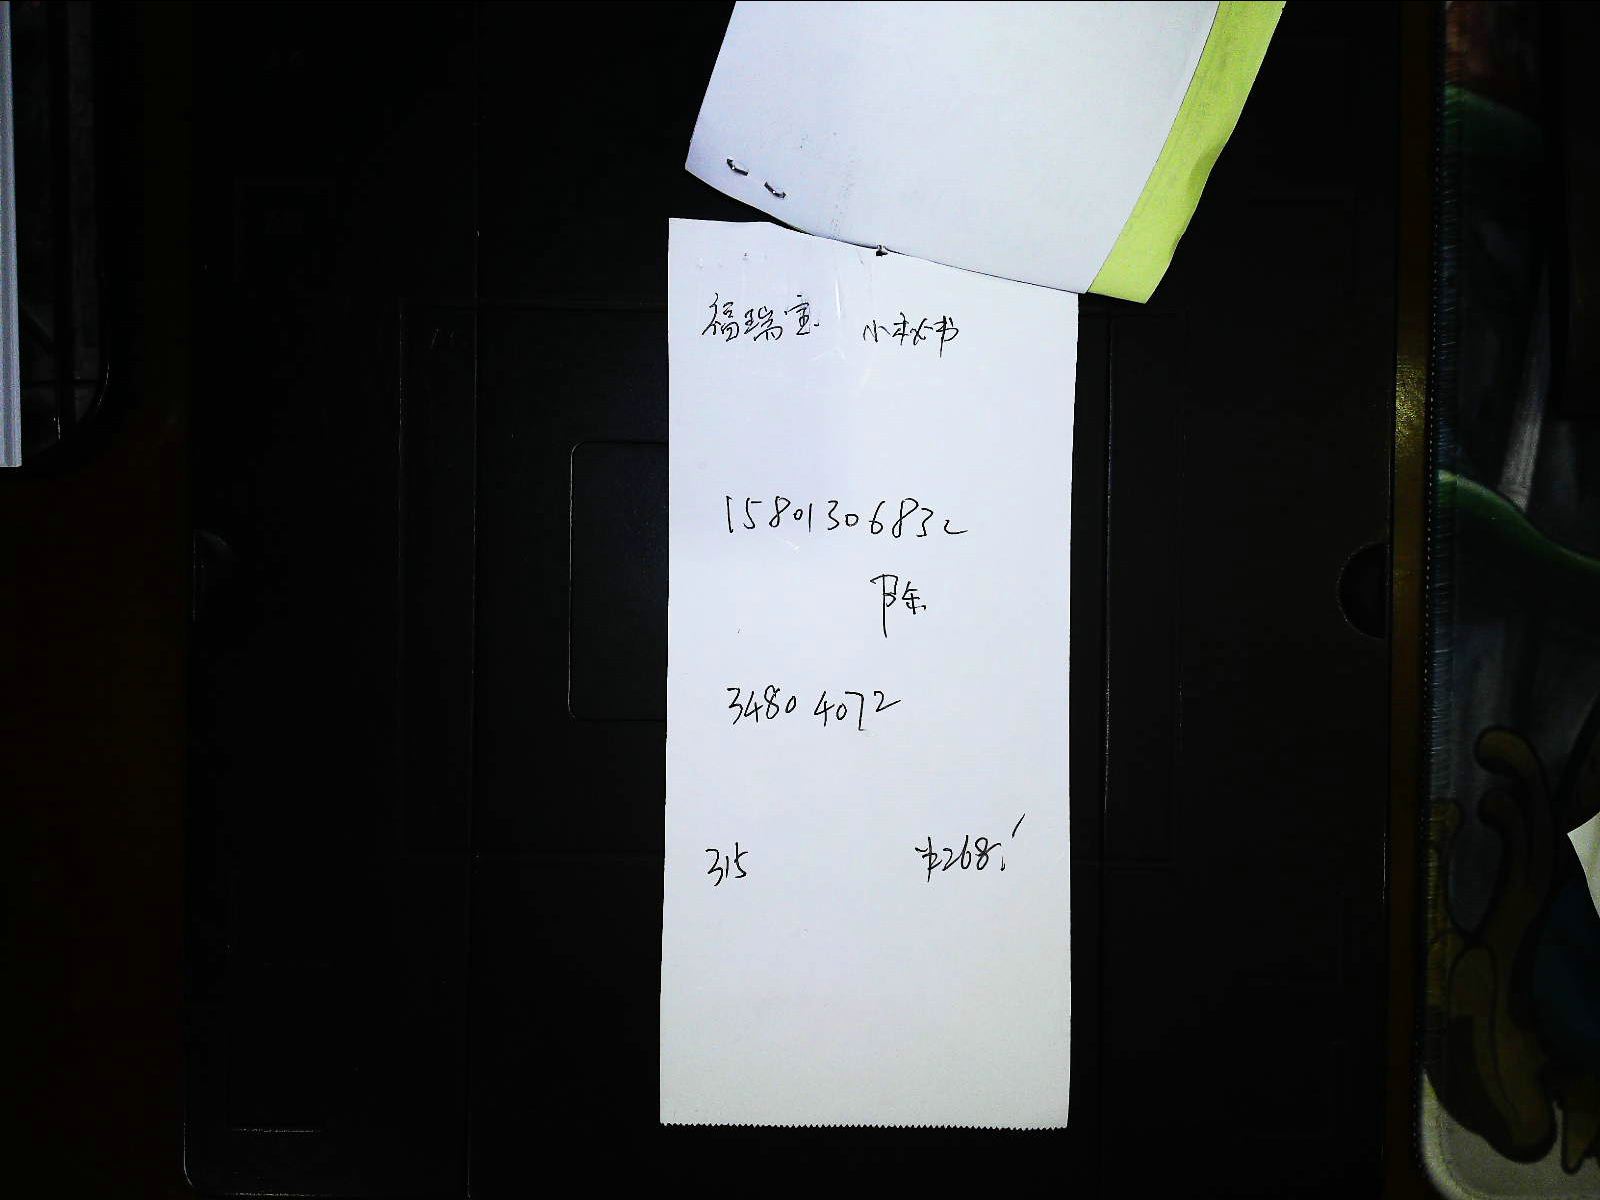 福瑞宝 小秘书
15801306832
陈
34804072
315 ¥268.